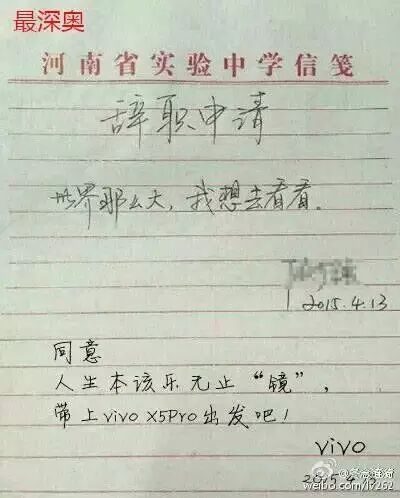 最深奥
河南省实验中学信笺
辞职申请
世界那么大,我想去看看.
2015.4.13
同意
人生本该乐无止“镜”,
带上vivo X5Pro出发吧!
vivo
2015.4.13